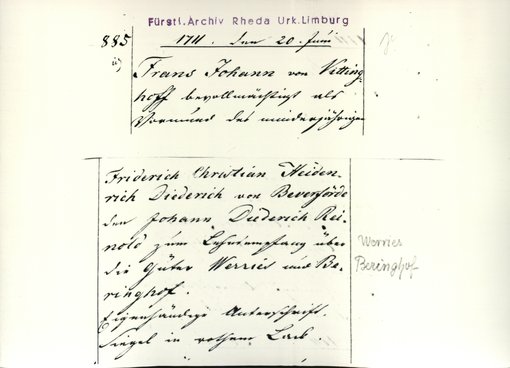 Fürstl. Archiv Rheda Urk. Limburg
885
1711. den 20. Juni
Frans Johann von Vitting-
hoff bevollmächtigt als
Vormund des minderjährigen
Friderich Christian Heiden-
rich Diederich von Beverförde
den Johann Diederich Rei-
nold zum Lehnempfang über
die Güter Werries und Be-
ringhof.
Eigenhändige Unterschrift.
Siegel in rothem Lack.
Werries
Beringhof